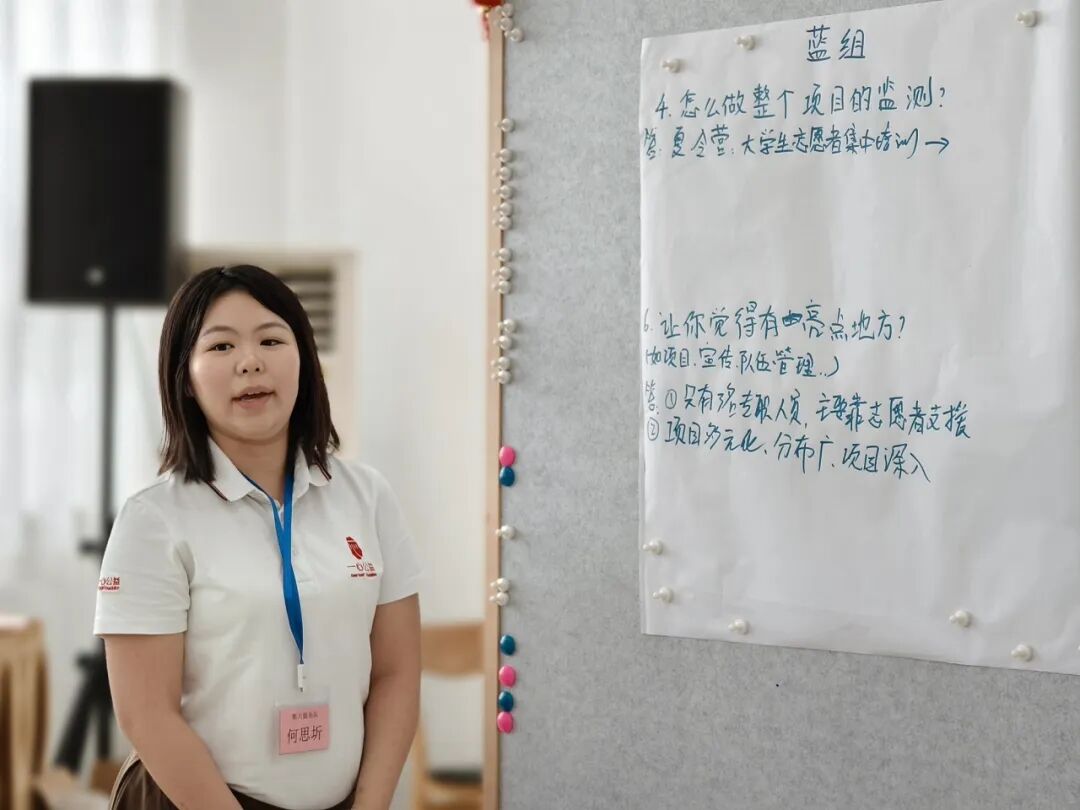 蓝组
4.怎么做整个项目的监测?
答:夏令营:大学生志愿者集中培训→
6.让你觉得有亮点地方?
(如项目、宣传、队伍管理..)
答:①只有3名专职人员,主要靠志愿者支援
②项目多元化、分布广、项目深入
一心公益
一心公益
何思圻